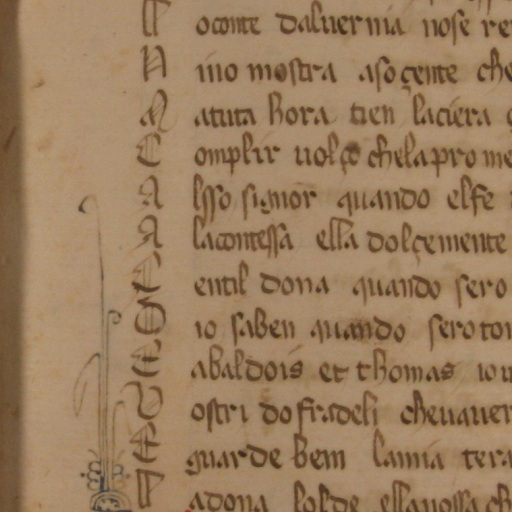 L oconte daluernia nose re
N ino mostra asoçente che
M atuta hora tien laciera
C omplir uolço chelapro me
A lsso signor quando elfe
A lacontessa ella dolçemente
G entil dona quando sero
S io saben quando sero tor
E abaldois et thomas io u
V ostri do fradeli cheuauer
E guarde bem lamia tera
L adona lolde ella uossa ch